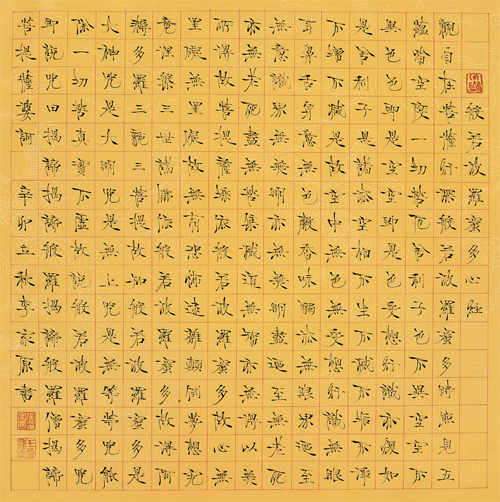 般若波羅蜜多心經
觀自在菩薩行深般若波羅蜜多時照見五
蘊皆空度一切苦厄舍利子色不異空空不
異色色即是空空即是色受想行識亦復如
是舍利子是諸法空相不生不滅不垢不淨
不增不減是故空中無色無受想行識無眼
耳鼻舌身意無色聲香味觸法無眼界乃至
無意識界無無明亦無無明盡乃至無老死
亦無老死盡無苦集滅道無智亦無得以無
所得故菩提薩埵依般若波羅蜜多故心無
罣礙無罣礙故無有恐怖遠離顛倒夢想究
竟涅槃三世諸佛依般若波羅蜜多故得阿
耨多羅三藐三菩提故知般若波羅蜜多是
大神咒是大明咒是無上咒是無等等咒能
除一切苦真實不虛故說般若波羅蜜多咒
即說咒曰揭諦揭諦般羅揭諦般羅僧揭諦
菩提薩婆訶 辛卯立秋李家原書